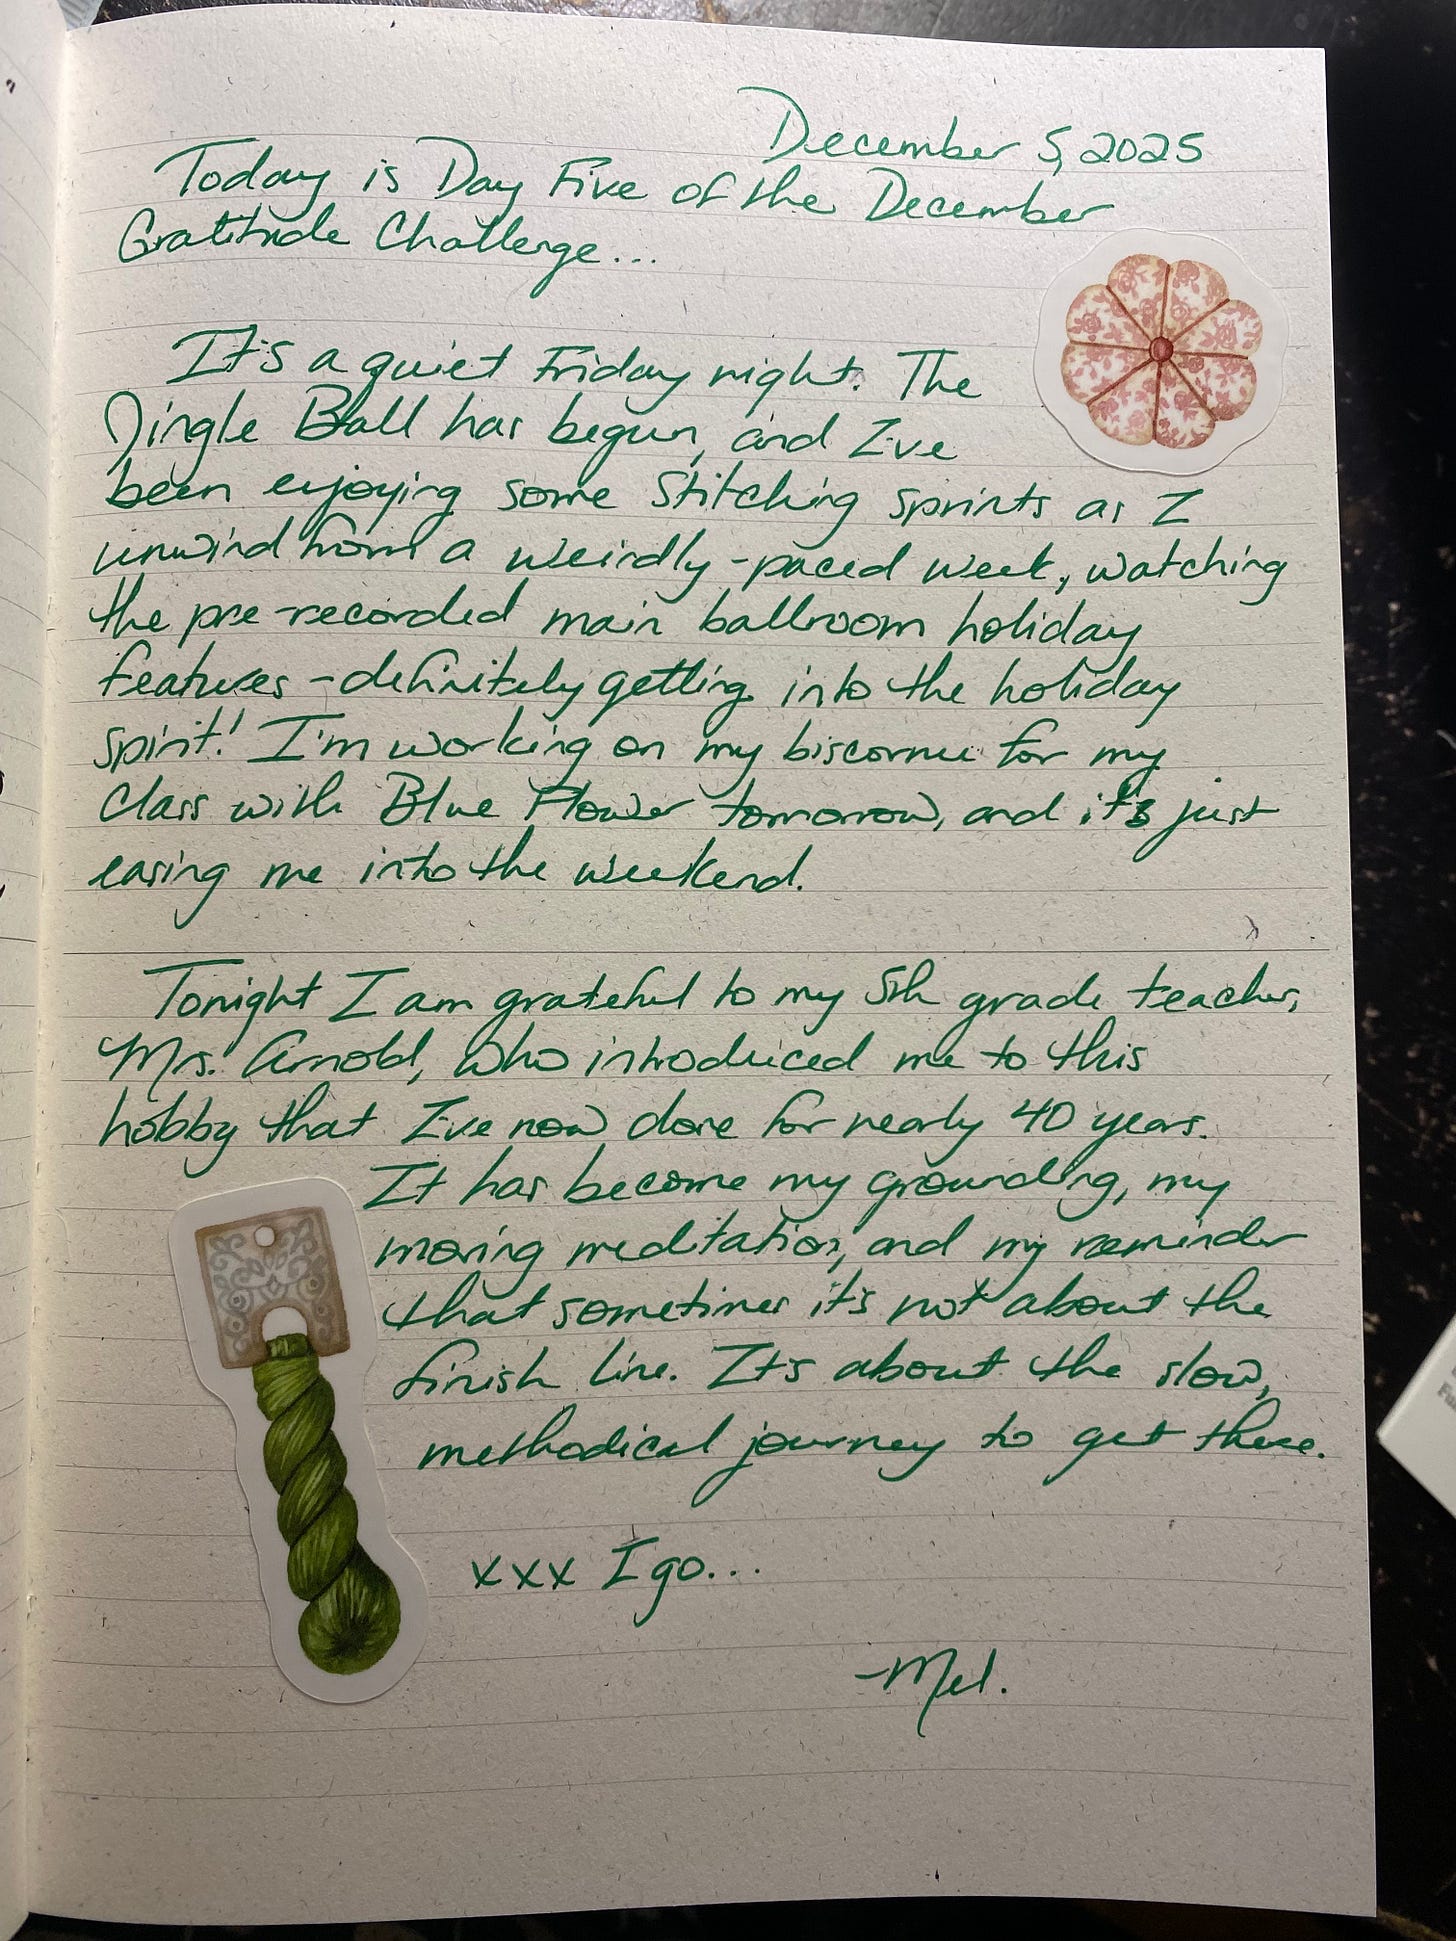 December 5, 2025
Today is Day Five of the December
Gratitude Challenge...
It's a quiet Friday night. The
Jingle Ball has begun, and I've
been enjoying some stitching sprints as I
unwind from a weirdly-paced week, watching
the pre-recorded main ballroom holiday
features - definitely getting into the holiday
spirit! I'm working on my biscornu for my
class with Blue Flower tomorrow, and it's just
easing me into the weekend.
Tonight I am grateful to my 5th grade teacher,
Mrs. Arnold, who introduced me to this
hobby that I've now done for nearly 40 years.
It has become my grounding, my
moving meditation, and my reminder
that sometimes it's not about the
finish line. It's about the slow,
methodical journey to get there.
xxx I go...
-Mel.